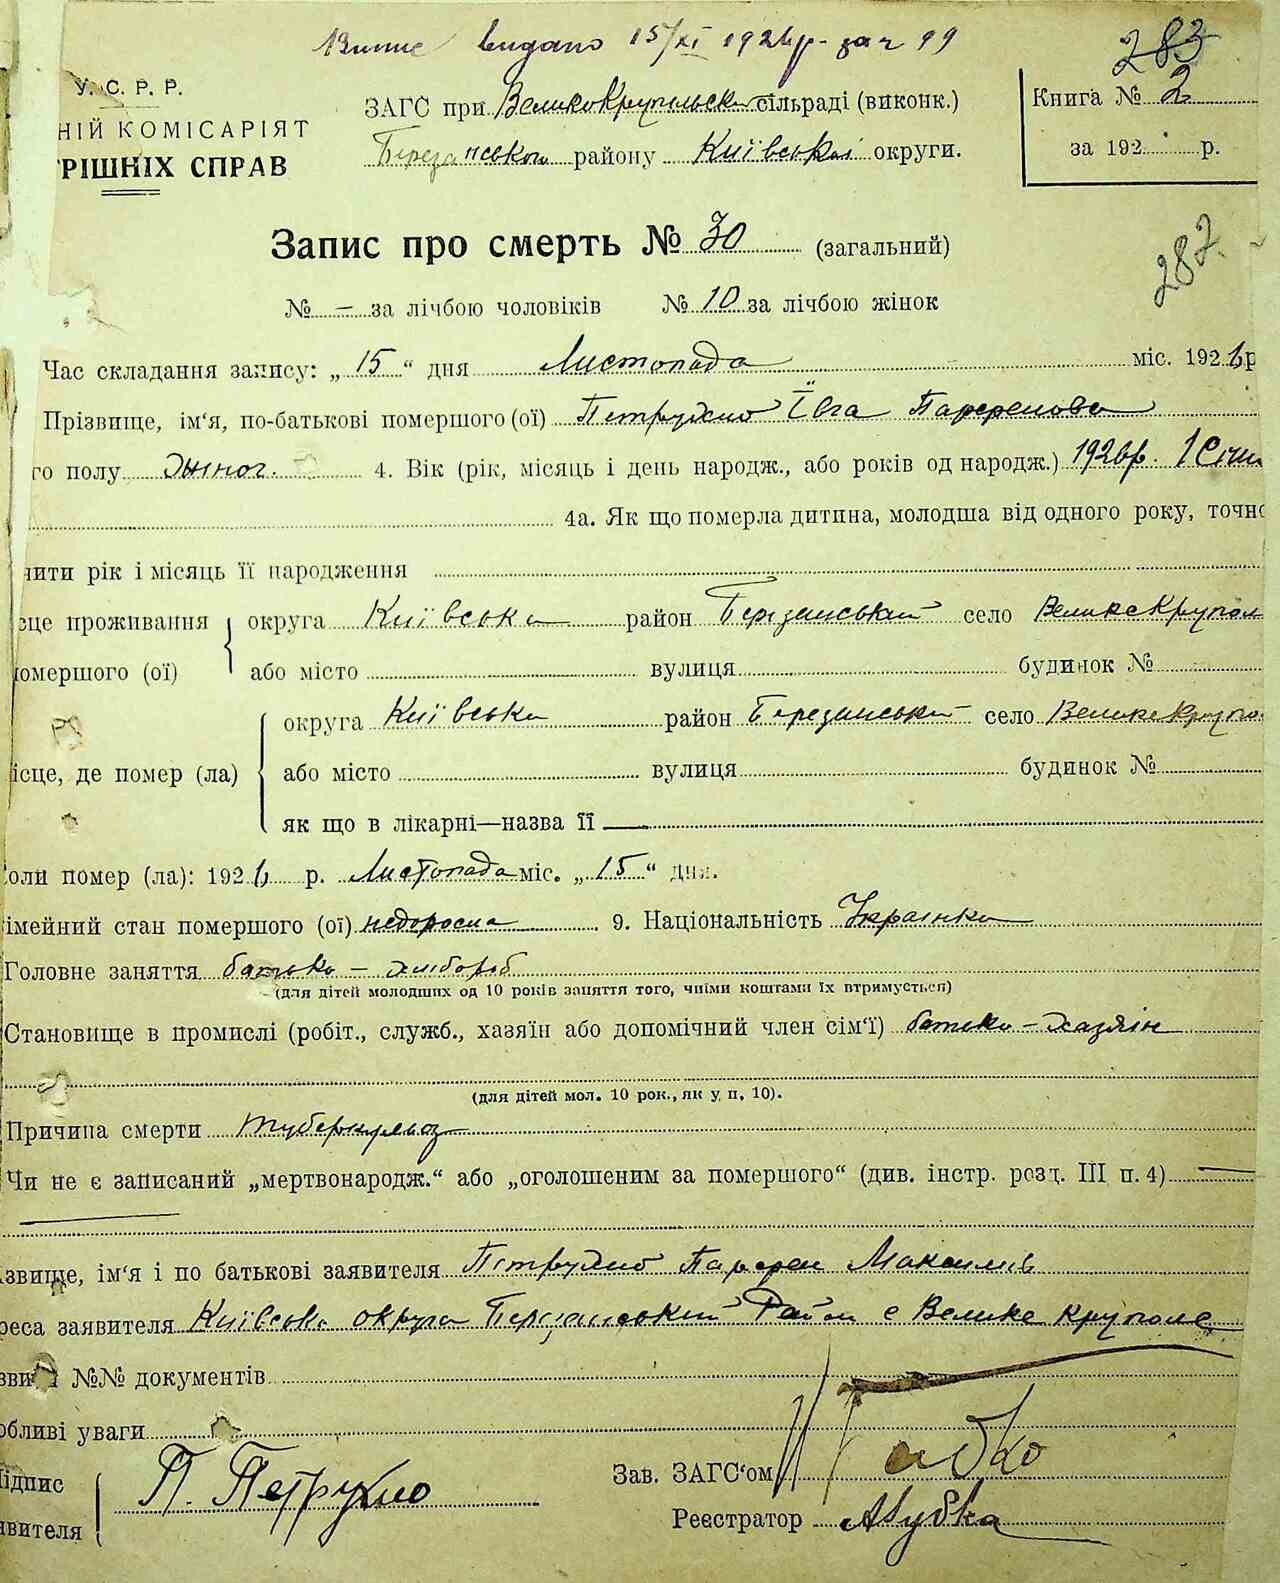 видано 15/XI 1926р. за ч 99
283
У. С. Р. Р.
НІЙ КОМІСАРІЯТ
РІШНІХ СПРАВ
ЗАГС при Великокрупільськи сільраді (виконк.)
Березанською району Київської округи.
Книга № 2
за 192 р.
Запис про смерть № 30 (загальний)
282.
№ – за лічбою чоловіків № 10 за лічбою жінок
Час складання запису: „ 15 “ дня Листопада міс. 1926 р
Прізвище, ім‘я, по-батькові помершого (ої) Петрухно Ївга Парфенова
го полу жіноч. 4. Вік (рік, місяць і день народж., або років од народж.) 1926р. 1 Січн
4а. Як що померла дитина, молодша від одного року, точно
чити рік і місяць її народження
сце проживання округа Київська район Березанський село Велике Крупол
помершого (ої) або місто вулиця будинок №
округа Київська район Березанський село Велике Крупо
ісце, де помер (ла) або місто вулиця будинок №
як що в лікарні—назва її
Коли помер (ла): 1926 р. Листопада міс. „ 15 “ дня.
імейний стан помершого (ої) недоросла 9. Національність Українка
Головне заняття батько – хлібороб
(для дітей молодших од 10 років заняття того, чиїми коштами їх втримується)
Становище в промислі (робіт., служб., хазяїн або допомічний член сім‘ї) батько – хазяїн
(для дітей мол. 10 рок., як у п, 10).
Причина смерти туберкульоз
Чи не є записаний „мертвонародж.“ або „оголошеним за помершого“ (див. інстр. розд. III п. 4)
звище, ім‘я і по батькові заявителя Петрухно Парфен Максимів
реса заявителя Київська округа Березанський Район с Велике круполе
зви №№ документів
обливі уваги
Підпис П. Петрухно Зав. ЗАГС‘ом
явителя Реєстратор